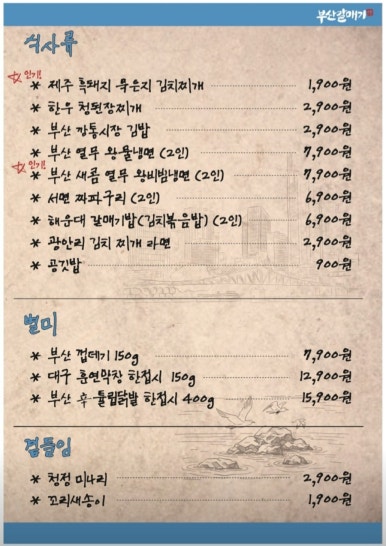 부산갈매기
식사류
인기!
* 제주 흑돼지 묵은지 김치찌개 1,900원
* 한우 청된장찌개 2,900원
* 부산 깡통시장 김밥 2,900원
* 부산 열무 왕물냉면 (2인) 7,900원
인기!
* 부산 새콤 열무 왕비빔냉면 (2인) 7,900원
* 서면 짜파구리 (2인) 6,900원
* 해운대 갈매기밥(김치볶음밥) (2인) 6,900원
* 광안리 김치 찌개 라면 2,900원
* 공깃밥 900원
별미
* 부산 껍데기 150g 7,900원
* 대구 훈연막창 한접시 150g 12,900원
* 부산 후-튤립닭발 한접시 400g 15,900원
곁들임
* 청정 미나리 2,900원
* 꼬리새송이 1,900원